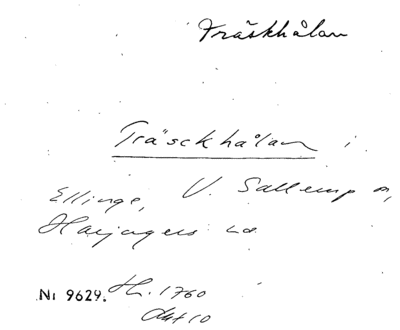 Träskhålan
Träsckhålan i
Ellinge, V. Sallerup sn,
Harjagers hd.
Nr 9629. Hr. 1760
Akt 10